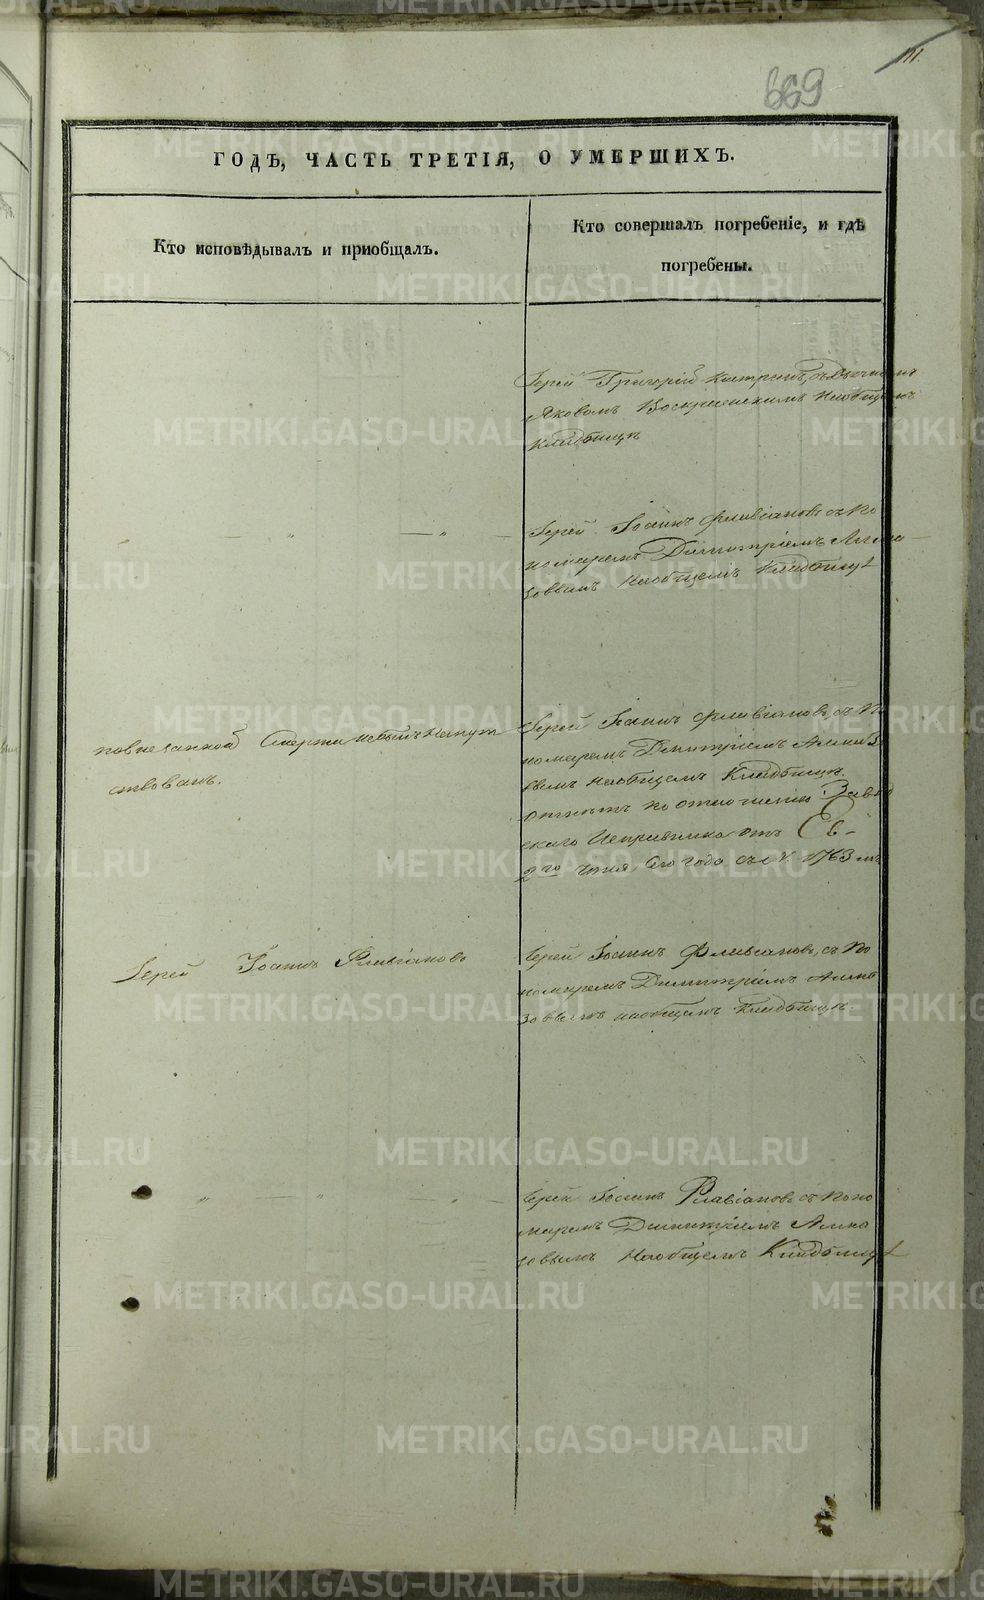 111.
669
ГОДЪ, ЧАСТЬ ТРЕТІЯ, О УМЕРШИХЪ.
Кто исповѣдывалъ и приобщалъ.
Кто совершалъ погребеніе, и гдѣ
погребены.
Іерей Григорій съ Дьячкомъ
Яковомъ Воскресенскимъ наобщемъ
Кладбищѣ
Іерей Іоаннъ Флавіановъ съ По
номаремъ Димитріемъ Алма
зовымъ наобщемъ Кладбищѣ
по внезапной Смерти небылъ напут
ствованъ.
Іерей Іоаннъ Флавіановъ, съ По
номаремъ Димитріемъ Алмазо
вымъ наобщемъ Кладбищѣ.
отпѣтъ по отношенію Завод
скаго Исправника отъ
2го Іюня, сего года съ № 1763 мъ
Іерей Іоаннъ Флавіановъ
Іерей Іоаннъ Флавіановъ, съ По
номаремъ Димитріемъ Алма
зовымъ наобщемъ Кладбищѣ.
Іерей Іоаннъ Флавіановъ съ Поно
маремъ Димитріемъ Алма
зовымъ Наобщемъ Кладбищѣ
METRIKI.GASO-URAL.RU